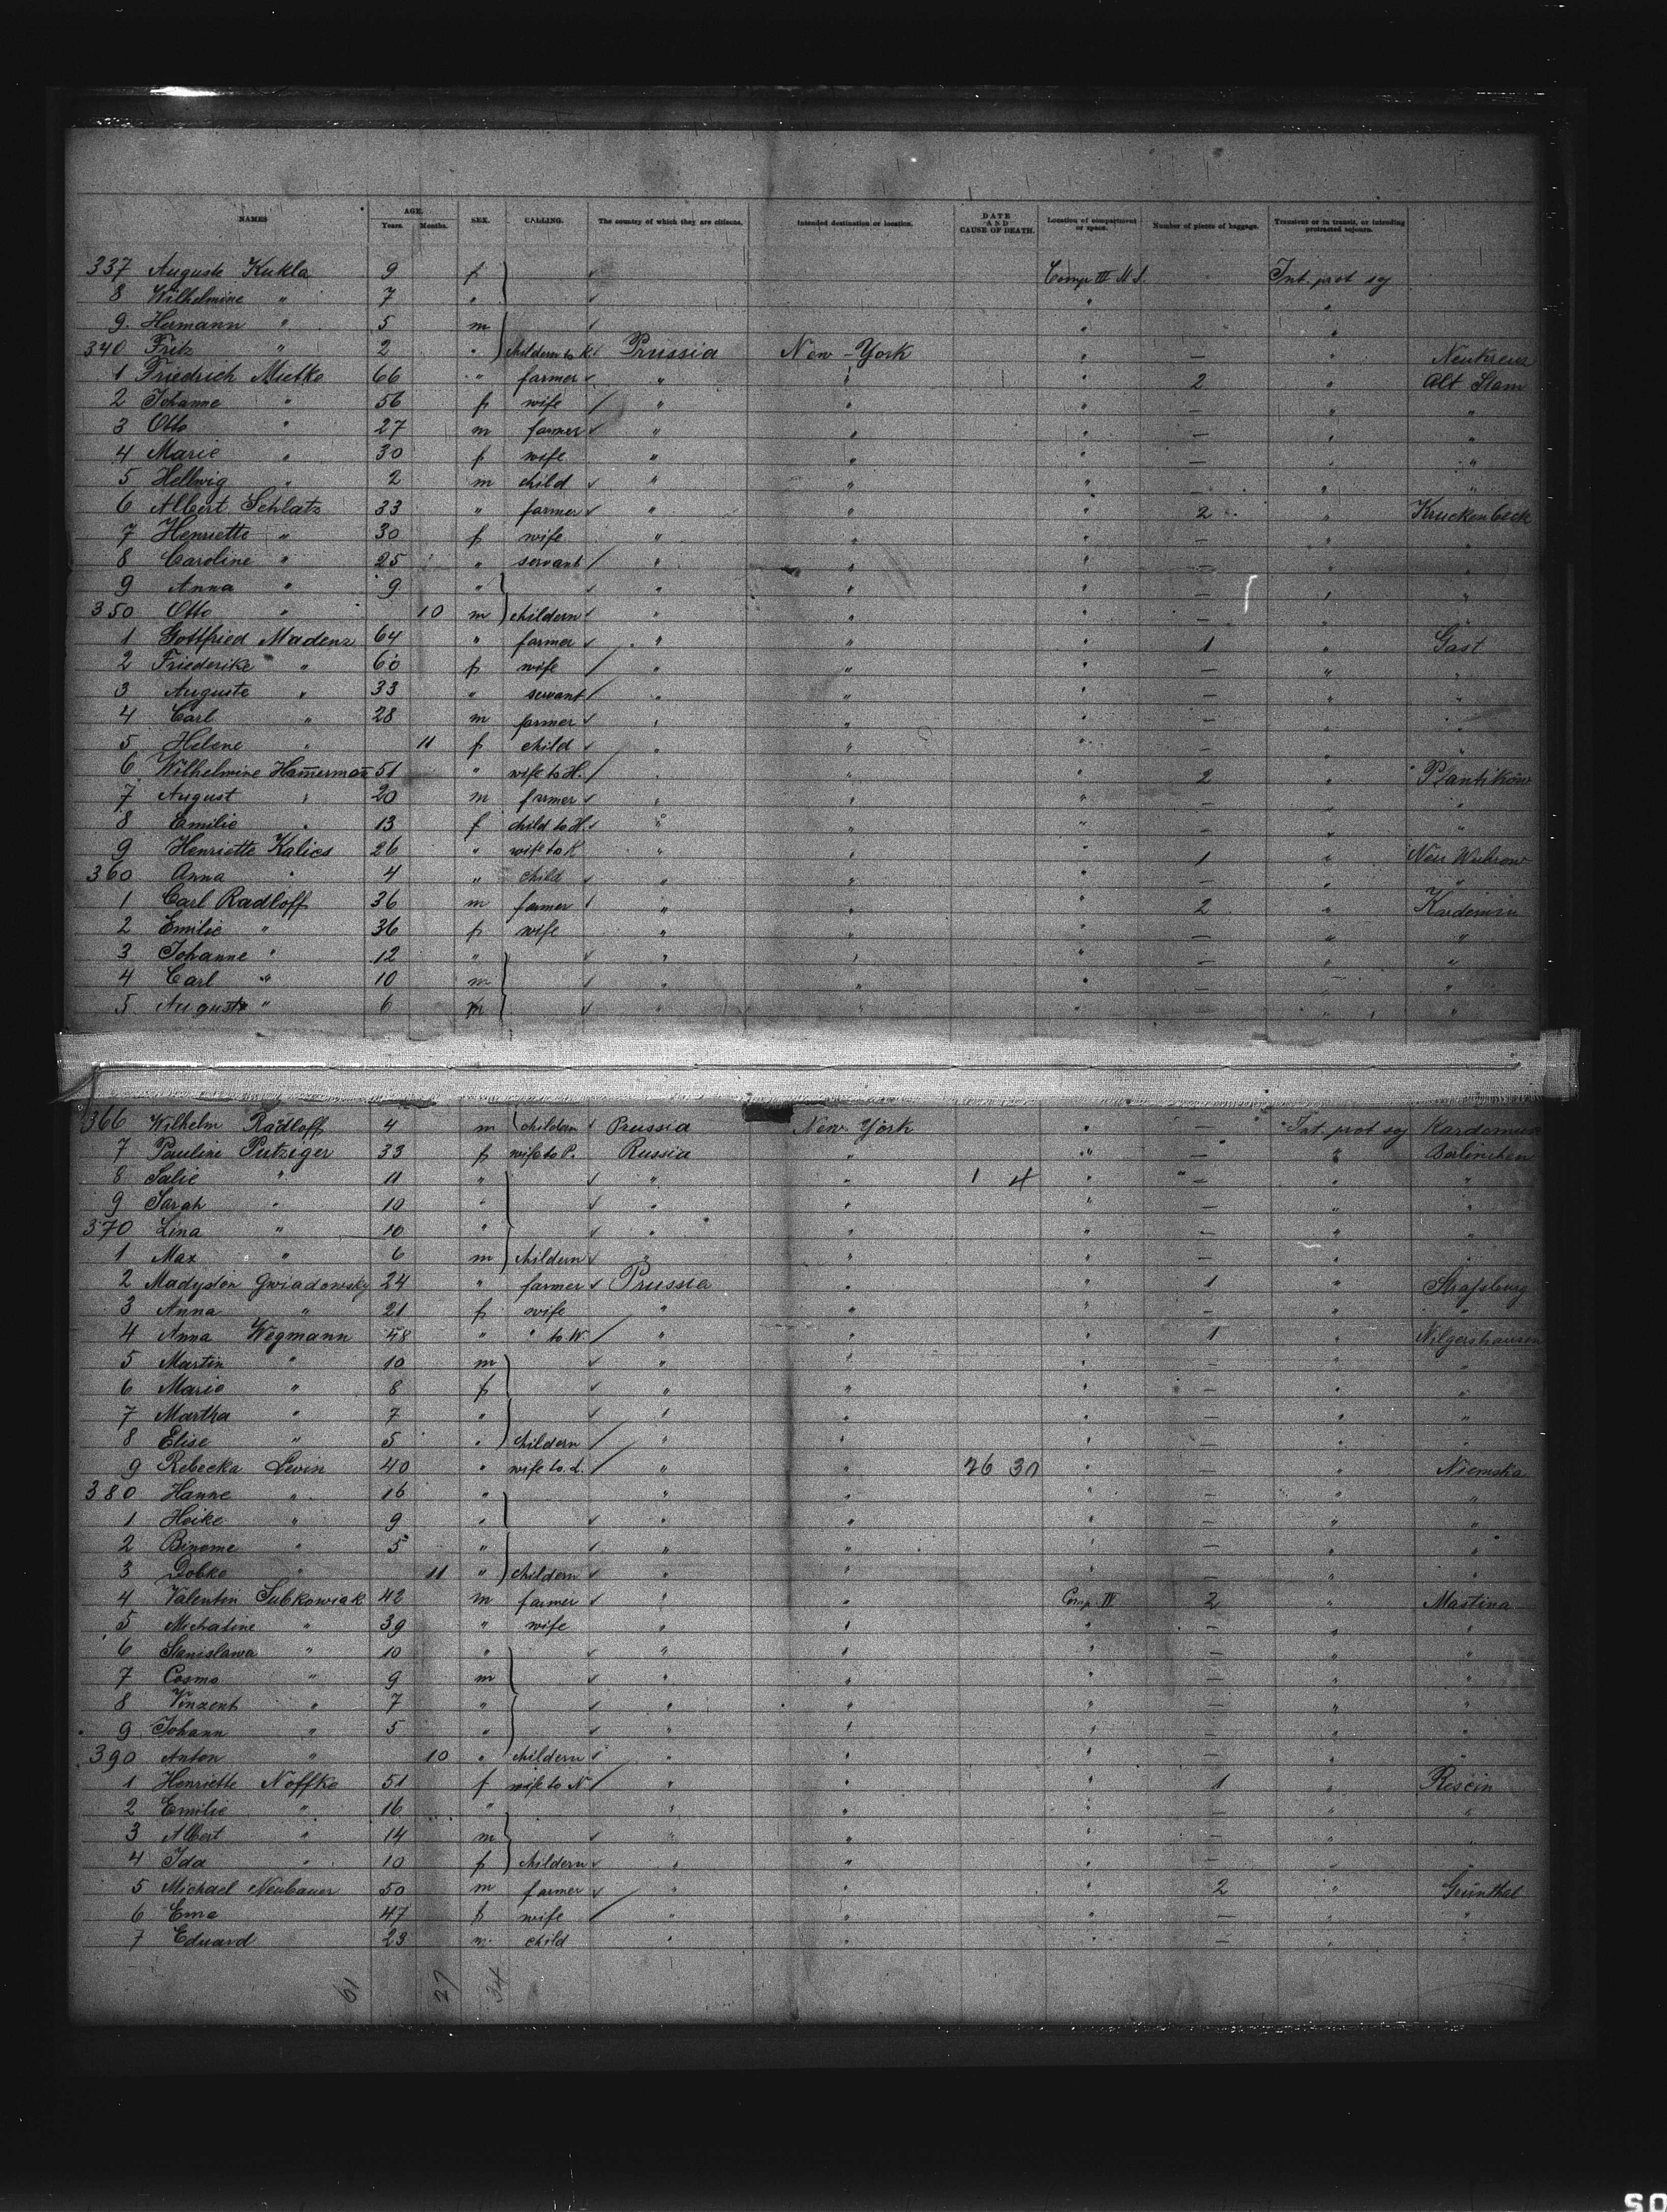 NAMES AGE. SEX. CALLING. The country of which they are citizens. Intended destination or location. DATE AND CAUSE OF DEATH. Location of compartment or space. Number of pieces of baggage. Transient or in transit, or intending protracted sojourn.
Years. Months.
337 Auguste Kukla 9 f Comp III Int. prot soj
8 Wilhelmine " 7 "
9. Hermann " 5 m
340 Fritz " 2 " childern to K Prussia New-York — " Neukreuz
1 Friedrich Mietke 66 " farmer " " " 2 " Alt Slam
2 Johanne " 56 f wife " " " — " "
3 Otto " 27 m farmer " " " — " "
4 Marie " 30 f wife " " " — " "
5 Hellwig " 2 m child " " " — " "
6 Albert Schlatz 33 " farmer " " " 2 " Kruckenbeck
7 Henriette " 30 f wife " " " — " "
8 Caroline " 25 " servant " " " — " "
9 Anna " 9 " " " " — " "
350 Otto " 10 m childern " " " — " "
1 Gottfried Madenz 64 " farmer " " " 1 " Gast
2 Friederike " 60 f wife " " " — " "
3 Auguste " 33 " servant " " " — " "
4 Carl " 28 m farmer " " " — " "
5 Helene " 11 f child " " " — " "
6 Wilhelmine Ham̅erman̅ 51 " wife to H. " " " 2 " Plantikow
7 August " 20 m farmer " " " — " "
8 Emilie " 13 f child to H. " " " — " "
9 Henriette Kalies 26 " wife to K " " " 1 " Neu Wuhrow
360 Anna " 4 " child " " " — " "
1 Carl Radloff 36 m farmer " " " 2 " Kardemin
2 Emilie " 36 f wife " " " — " "
3 Johanne " 12 " " " " — " "
4 Carl " 10 m " " " — " "
5 Auguste " 6 " " " "
366 Wilhelm Radloff 4 m childern Prussia New York " — Int. prot soj
7 Pauline Putziger 33 f wife to P. Russia " " — " Berlinchen
8 Salie " 11 " " " 1 4 " — " "
9 Sarah " 10 " " " " — " "
370 Lina " 10 " " " " — " "
1 Max " 6 m childern " " " — " "
2 Gwiadowsky 24 " farmer Prussia " " 1 " Straſsburg
3 Anna " 21 f wife " " " — " "
4 Anna Wegmann 48 " " to W. " " " 1 " Nilgershausen
5 Martin " 10 m " " " — " "
6 Marie " 8 f " " " — " "
7 Martha " 7 " " " " — " "
8 Elise " 5 " childern " " " — " "
9 Rebecka Levin 40 " wife to L. " " 26 30 " — " Niemska
380 Hanne " 16 " " " " — " "
1 Heike " 9 " " " " — " "
2 Bineme " 5 " " " " — " "
3 Dobke " 11 " childern " " " — " "
4 Valentin Subkowiak 42 m farmer " " Comp. IV 2 " Mastina
5 Michaline " 39 " wife " " " — " "
6 Stanislawa " 10 " " " " — " "
7 Cosmo " 9 m " " " — " "
8 Vinzent " 7 " " " " — " "
9 Johann " 5 " " " " — " "
390 Anton " 10 " childern " " " — " "
1 Henriette Noffke 51 f wife to N " " " 1 " Rescin
2 Emilie " 16 " " " " — " "
3 Albert " 14 m " " " — " "
4 Ida " 10 f childern " " " — " "
5 Michael Neubauer 50 m farmer " " " 2 " Grünthal
6 Eme 47 f wife " " " — " "
7 Eduard 23 m child " " " — " "
61 27 34